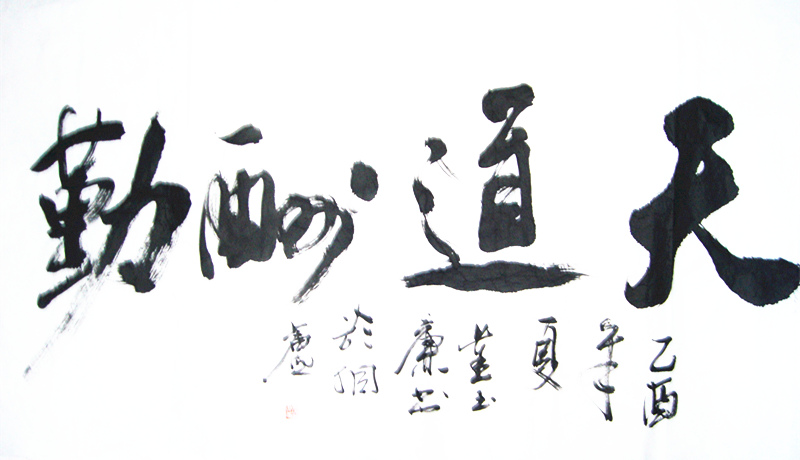 天道酬勤
乙酉
年
夏
董玉
廉书
於烟